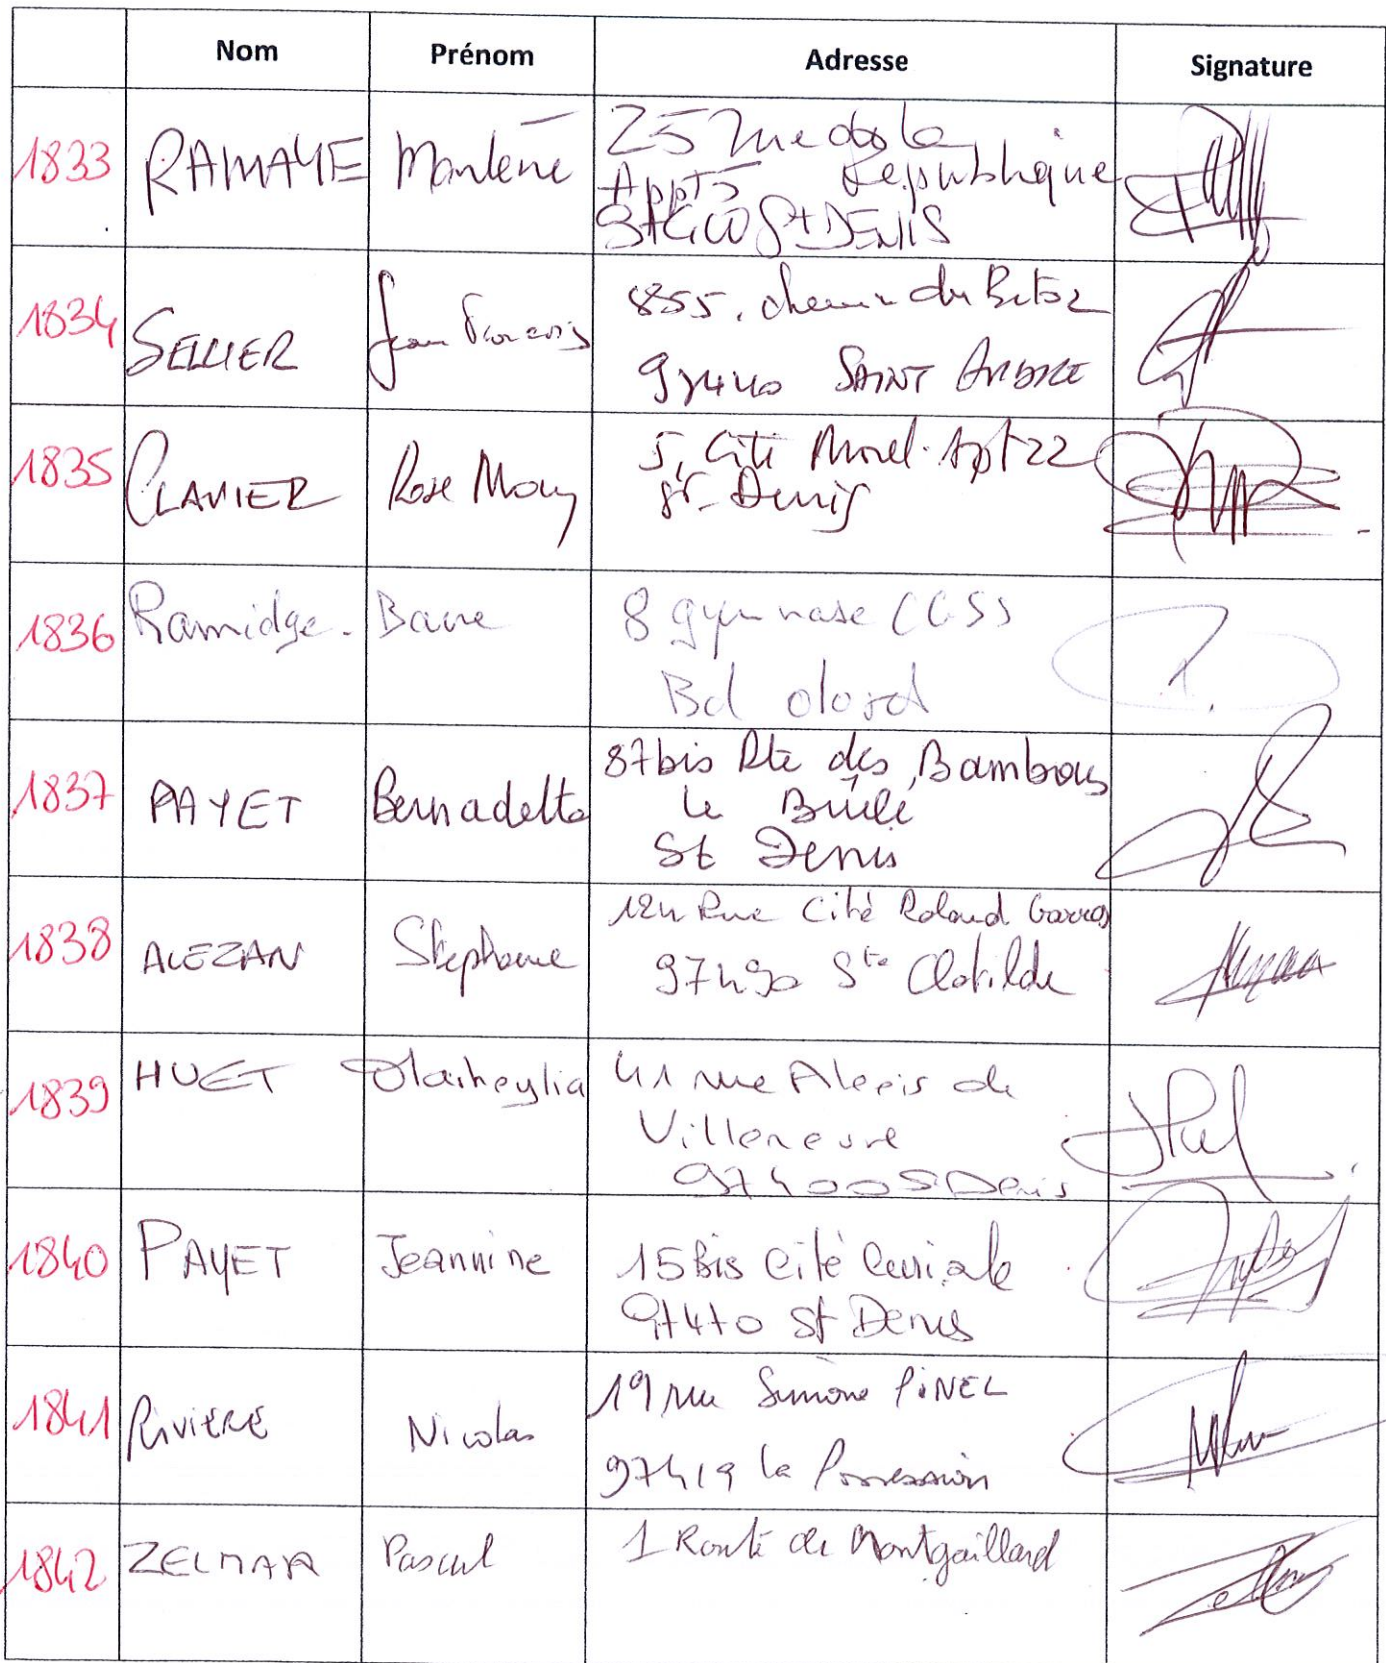 Nom Prénom Adresse Signature
1833 RAMAYE Marlène 25 rue de la
Appt 5 République
97400 St DENIS
1834 SELLIER Jean François 855, chemin du Bras
97440 SAINT ANDRE
1835 CLAVIER Rose May 5, Cité Morel. Apt 22
St-Denis
1836 Ramidge. 8 gymnase CGSS
Bd
1837 PAYET Bernadette 87bis Rte des Bambous
le Brûlé
St Denis
1838 ALEZAN Stephane 124 Rue Cité Roland Garros
97490 Ste Clotilde
1839 HUET 41 rue Alexis de
Villeneuve
97400 S Denis
1840 PAYET Jeannine 15 Bis Cité
97470 St Denis
1841 RIVIERE Nicolas 19 rue Simone PINEL
97419 la Possession
1842 ZELMAR Pascal 1 Route de Montgaillard